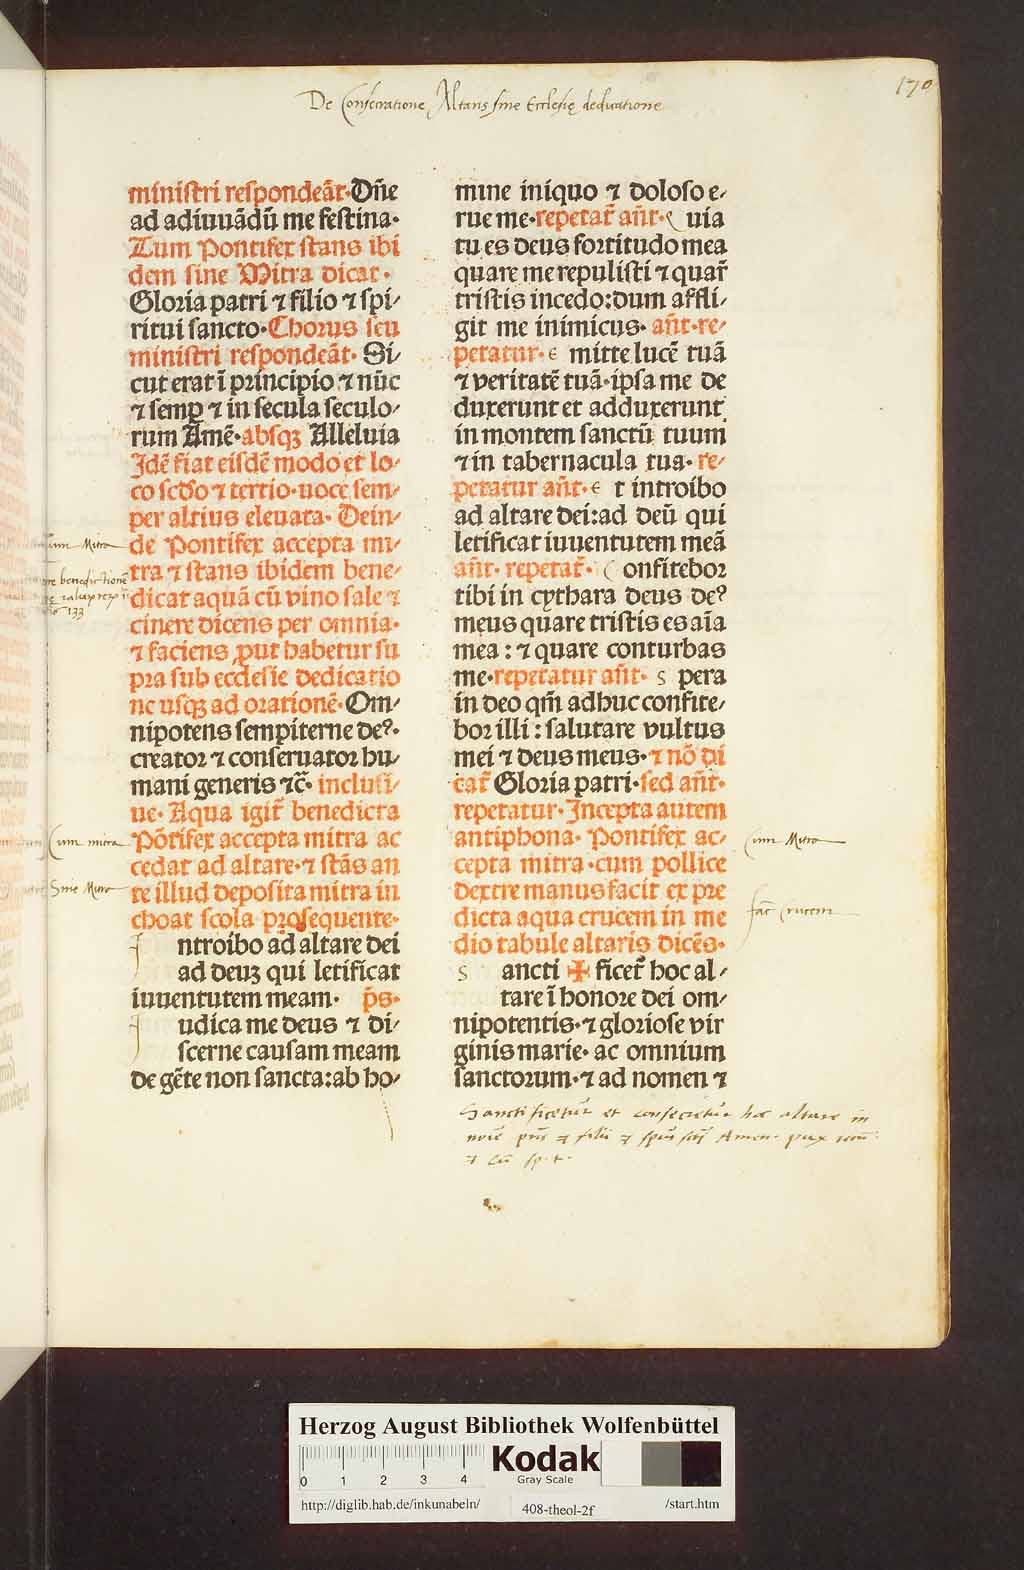 De Consecratione Altaris sine Ecclesię dedicatione
170
ministri respondeāt·Dn̄e
ad adiuuādū me festina·
Tum Pontifex stans ibi
dem sine Mitra dicat·
Gloria patri ⁊ filio ⁊ spi⸗
ritui sancto·Chorus seu
ministri respondeāt· Si⸗
cut erat ī principio ⁊ nūc
⁊ semꝑ ⁊ in secula seculo⸗
rum Amē·absqꝫ Alleluia
Idē fiat eisdē modo et lo⸗
co scd̓o ⁊ tertio·uoce sem⸗
per altius eleuata· Dein⸗
de Pontifex accepta mi⸗
tra ⁊ stans ibidem bene⸗
dicat aquā cū vino sale ⁊
cinere dicens per omnia·
⁊ faciens ꝓut habetur su
pra sub ecclesie dedicatio
ne usqꝫ ad orationē· Om⸗
nipotens sempiterne deꝰ·
creator ⁊ conseruator hu⸗
mani generis ⁊c̄· inclusi⸗
ue· Aqua igit̄ benedicta
Pōtifex accepta mitra ac
cedat ad altare·⁊ stās an
te illud deposita mitra in
choat scola prosequente·
Introibo ad altare dei
ad deuꝫ qui letificat
iuuentutem meam· p̄s·
Iudica me deus ⁊ di⸗
scerne causam meam
de gēte non sancta:ab ho⸗
mine iniquo ⁊ doloso e⸗
rue me·repetat̄ an̄t· Quia
tu es deus fortitudo mea
quare me repulisti ⁊ quar̄
tristis incedo:dum affli⸗
git me inimicus· an̄t·re⸗
petatur· e mitte lucē tuā
⁊ veritatē tuā·ipsa me de
duxerunt et adduxerunt
in montem sanctū tuum
⁊ in tabernacula tua· re⸗
petatur an̄t· e t introibo
ad altare dei:ad deū qui
letificat iuuentutem meā
an̄t· repetat̄· Confitebor
tibi in cythara deus deꝰ
meus quare tristis es aīa
mea : ⁊ quare conturbas
me·repetatur an̄t· s pera
in deo qm̄ adhuc confite⸗
bor illi : salutare vultus
mei ⁊ deus meus· ⁊ nō di
cat̄ Gloria patri·sed an̄t·
repetatur·Incepta autem
antiphona· Pontifex ac⸗
cepta mitra·cum pollice
dextre manus facit ex pre
dicta aqua crucem in me
dio tabule altaris dicēs·
s ancti ✠ ficet̄ hoc al⸗
tare ī honore dei om⸗
nipotentis·⁊ gloriose vir
ginis marie· ac omnium
sanctorum·⁊ ad nomen ⁊
Mitra
benedictionē
133
Cum mitra
Sine Mitra
Cum Mitra
fac Crucem
Sanctificetur et consecretur hoc altare in
noīe pr̄is ⁊ filii ⁊ sp̄us sc̄ti Amen· pax
⁊ cū sp· t·
Herzog August Bibliothek Wolfenbüttel
0 1 2 3 4
Kodak
Gray Scale
http://diglib.hab.de/inkunabeln/
408-theol-2f
/start.htm